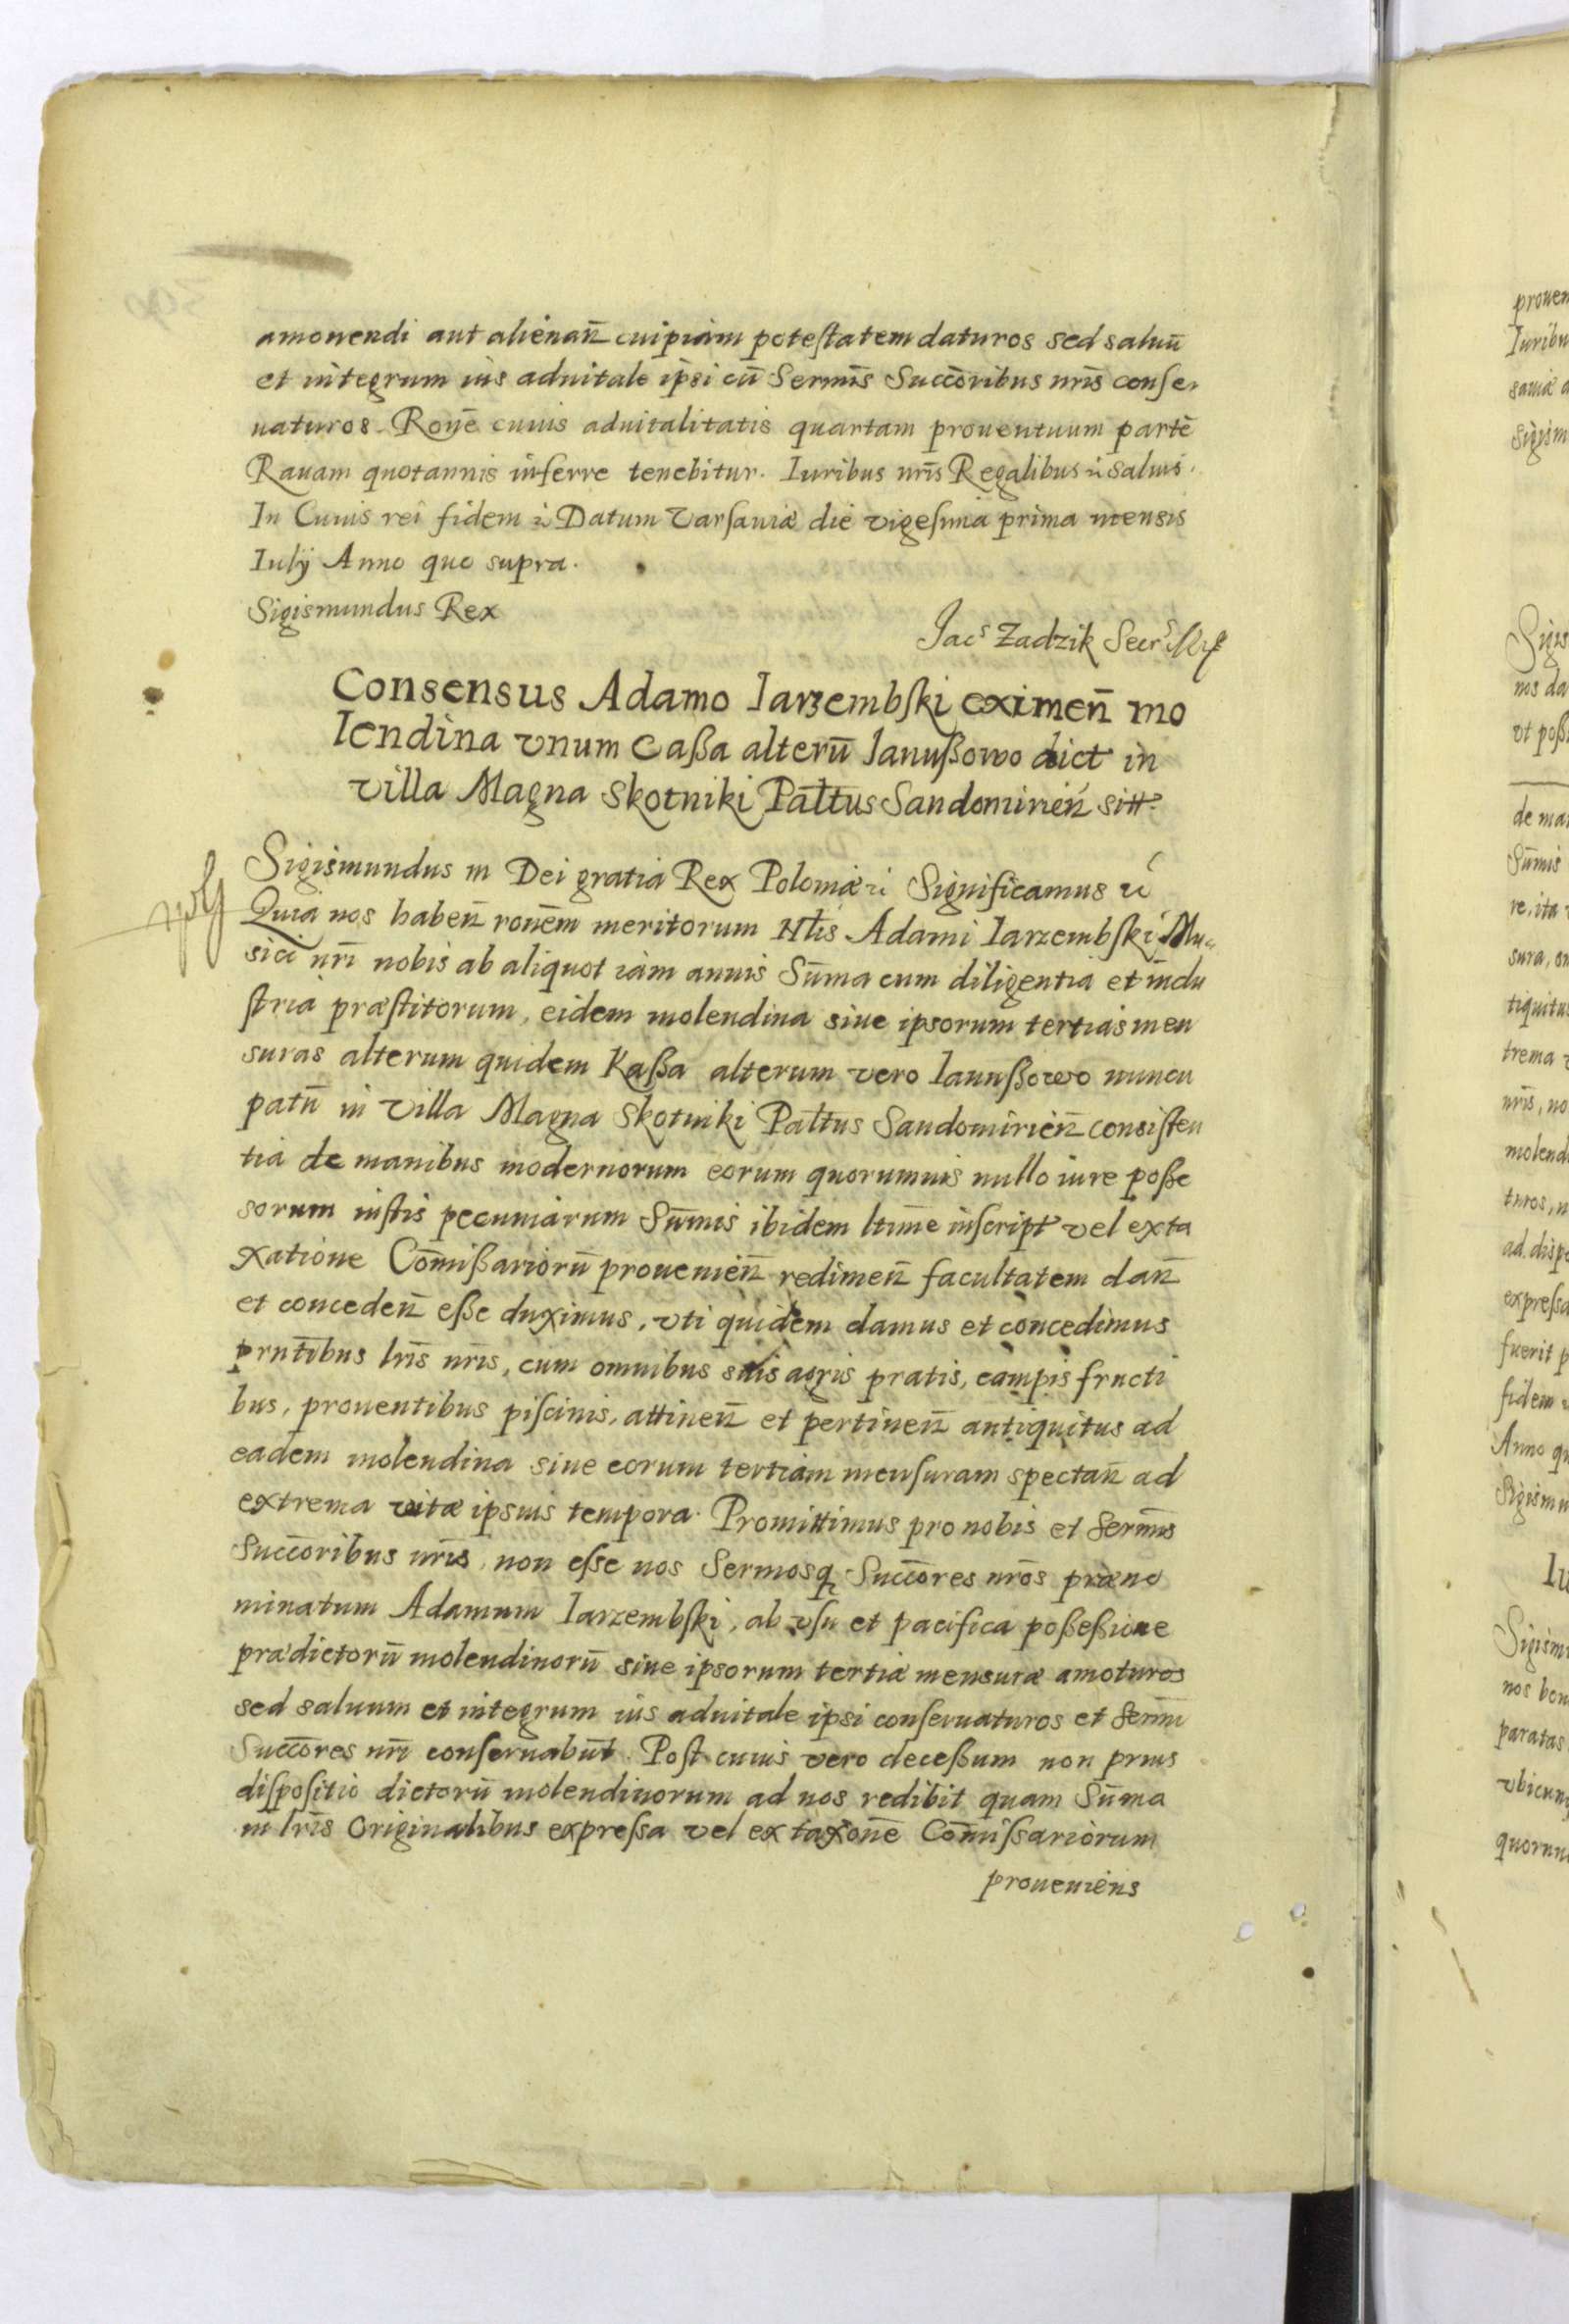 amouendi aut alienañ cuipiam potestatem daturos sed saluũ
et integrum ius aduitale ipsi cũ Sermis̃ Succõribus nris̃ conser
uaturos. Ronẽ cuius aduitalitatis quartam prouentuum partẽ
Rauam quotannis inferre tenebitur. Iuribus nris̃ Regalibus ꝛc saluis.
In Cuius rei fidem ꝛc Datum Varsauiæ die vigesima prima mensis
Iulij Anno quo supra.
Sigismundus Rex
Jacs Zadzik Secrs
Consensus Adamo Iarzembski eximeñ mo
lendina vnum Caßa alterũ Ianußowo dict in
villa Magna Skotniki Pal̃tus Sandomirieñ sitt
Sigismundus III Dei gratia Rex Poloniæ ꝛc Significamus ꝛc
Quia nos habeñ ronẽm meritorum Nl̃is Adami Iarzembski Mu
sici nrĩ nobis ab aliquot iam annis Sũma cum diligentia et indu
stria præstitorum, eidem molendina siue ipsorum tertias men
suras alterum quidem Kaßa alterum vero Ianußowo nuncu
patũ in Villa Magna Skotniki Pal̃tus Sandomirieñ consisten
tia de manibus modernorum eorum quorumuis nullo iure poße
sorum iustis pecuniarum Sũmis ibidem ltimẽ inscript vel exta
xatione Cõmißariorũ prouenieñ redimeñ facultatem dañ
et concedeñ eße duximus, vti quidem damus et concedimus
prntĩbus lris̃ nris̃, cum omnibus suis agris pratis, campis fructi
bus, prouentibus piscinis, attineñ et pertineñ antiquitus ad
eadem molendina siue eorum tertiam mensuram spectañ ad
extrema vitæ ipsius tempora. Promittimus pro nobis et Sermis̃
Succõribus nris̃, non esse nos Sermosq̃ Succõres nrõs præno
minatum Adamum Iarzembski, ab vsu et pacifica poßeßione
prædictorũ molendinorũ siue ipsorum tertiæ mensuræ amoturos
sed saluum et integrum ius aduitale ipsi conseruaturos et Sermĩ
Succõres nrĩ conseruabũt. Post cuius vero deceßum non prius
dispositio dictorũ molendinorum ad nos redibit quam Sũma
in lris̃ Originalibus expressa vel ex taxõne Cõmissariorum
proueniens